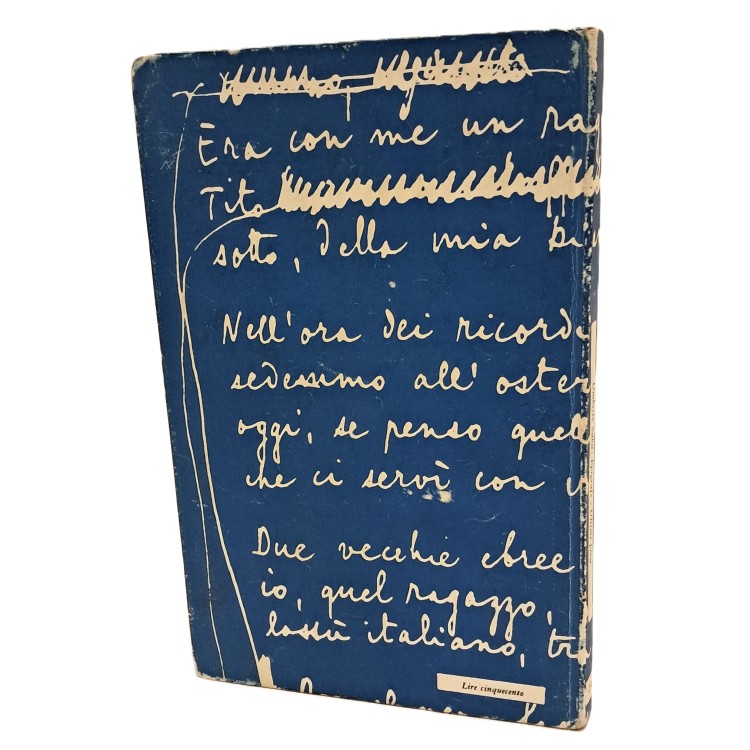 Era con me un rag
Tito
sotto, della mia
Nell'ora dei ricord
sedessimo all' oster
oggi, se penso quell
che ci servì con v
Due vecchie ebree
io, quel ragazzo,
lassù italiano, tra
Lire cinquecento